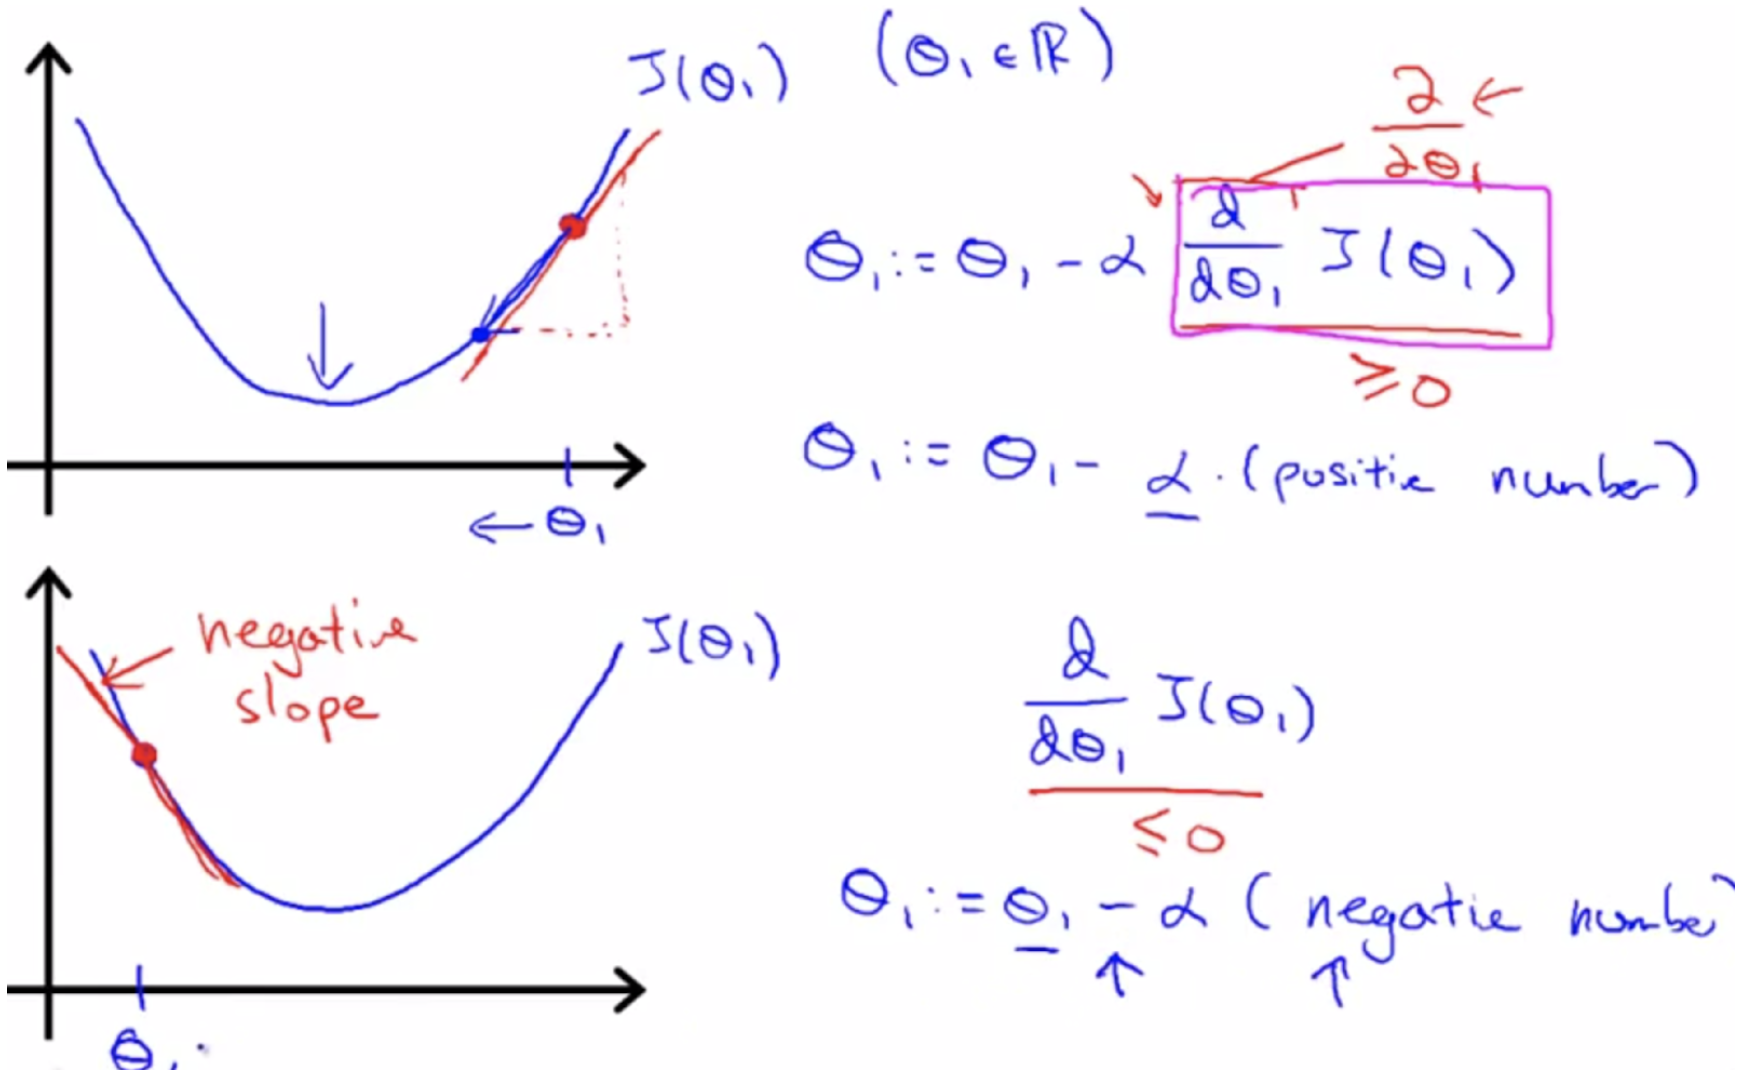 J(Θ₁) (Θ₁ ∈ ℝ)
∂/∂Θ₁ ←
Θ₁ := Θ₁ - α d/dΘ₁ J(Θ₁)
≥ 0
Θ₁ := Θ₁ - α · (positive number)
← Θ₁
negative
slope
J(Θ₁)
d/dΘ₁ J(Θ₁)
≤ 0
Θ₁ := Θ₁ - α (negative number)
Θ₁